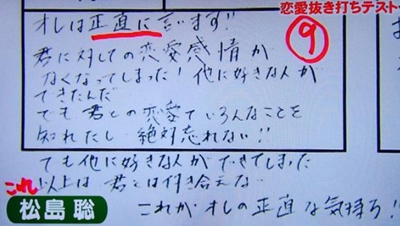 恋愛抜き打ちテスト
オレは正直に言います!!
⑨
君に対しての恋愛感情が
なくなってしまった!他に好きな人が
できたんだ
でも君との恋愛でいろんなことを
知れたし絶対忘れない!!
でも他に好きな人ができてしまった
これ以上は君とは付き合えない
これがオレの正直な気持ち!!
松島聡